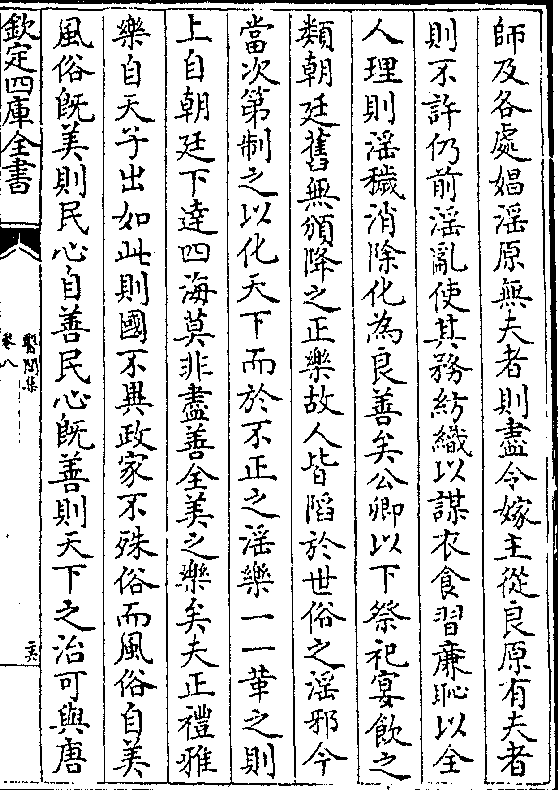 師及各處娼淫原無夫者則盡令嫁主從良原有夫者
則不許仍前淫亂使其務紡織以謀衣食習亷恥以全
人理則淫穢消除化為良善矣公卿以下祭祀宴飲之
類朝廷舊無頒降之正樂故人皆䧟於世俗之淫邪今
當次第制之以化天下而於不正之淫樂一一革之則
上自朝廷下達四海莫非盡善全美之樂矣夫正禮雅
樂自天子出如此則國不異政家不殊俗而風俗自美
風俗既美則民心自善民心既善則天下之治可與唐
欽定四庫全書
醫閭集
卷八